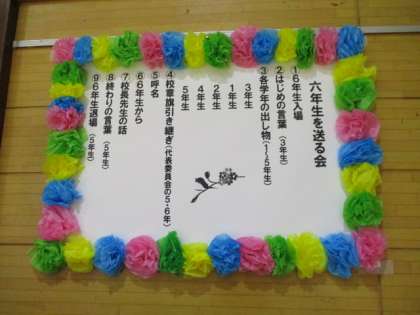 六年生を送る会
①6年生入場
②はじめの言葉(3年生)
③各学年の出し物(1~5年生)
3年生
1年生
2年生
4年生
5年生
④校章旗引き継ぎ(代表委員会の5・6年)
⑤呼名
⑥6年生から
⑦校長先生の話
⑧終わりの言葉(5年生)
⑨6年生退場(5年生)